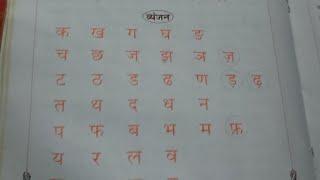 व्यंजन
क ख ग घ ङ
च छ ज झ ञ ज़
ट ठ ड ढ ण ड़ ढ़
त थ द ध न
प फ ब भ म फ़
य र ल व